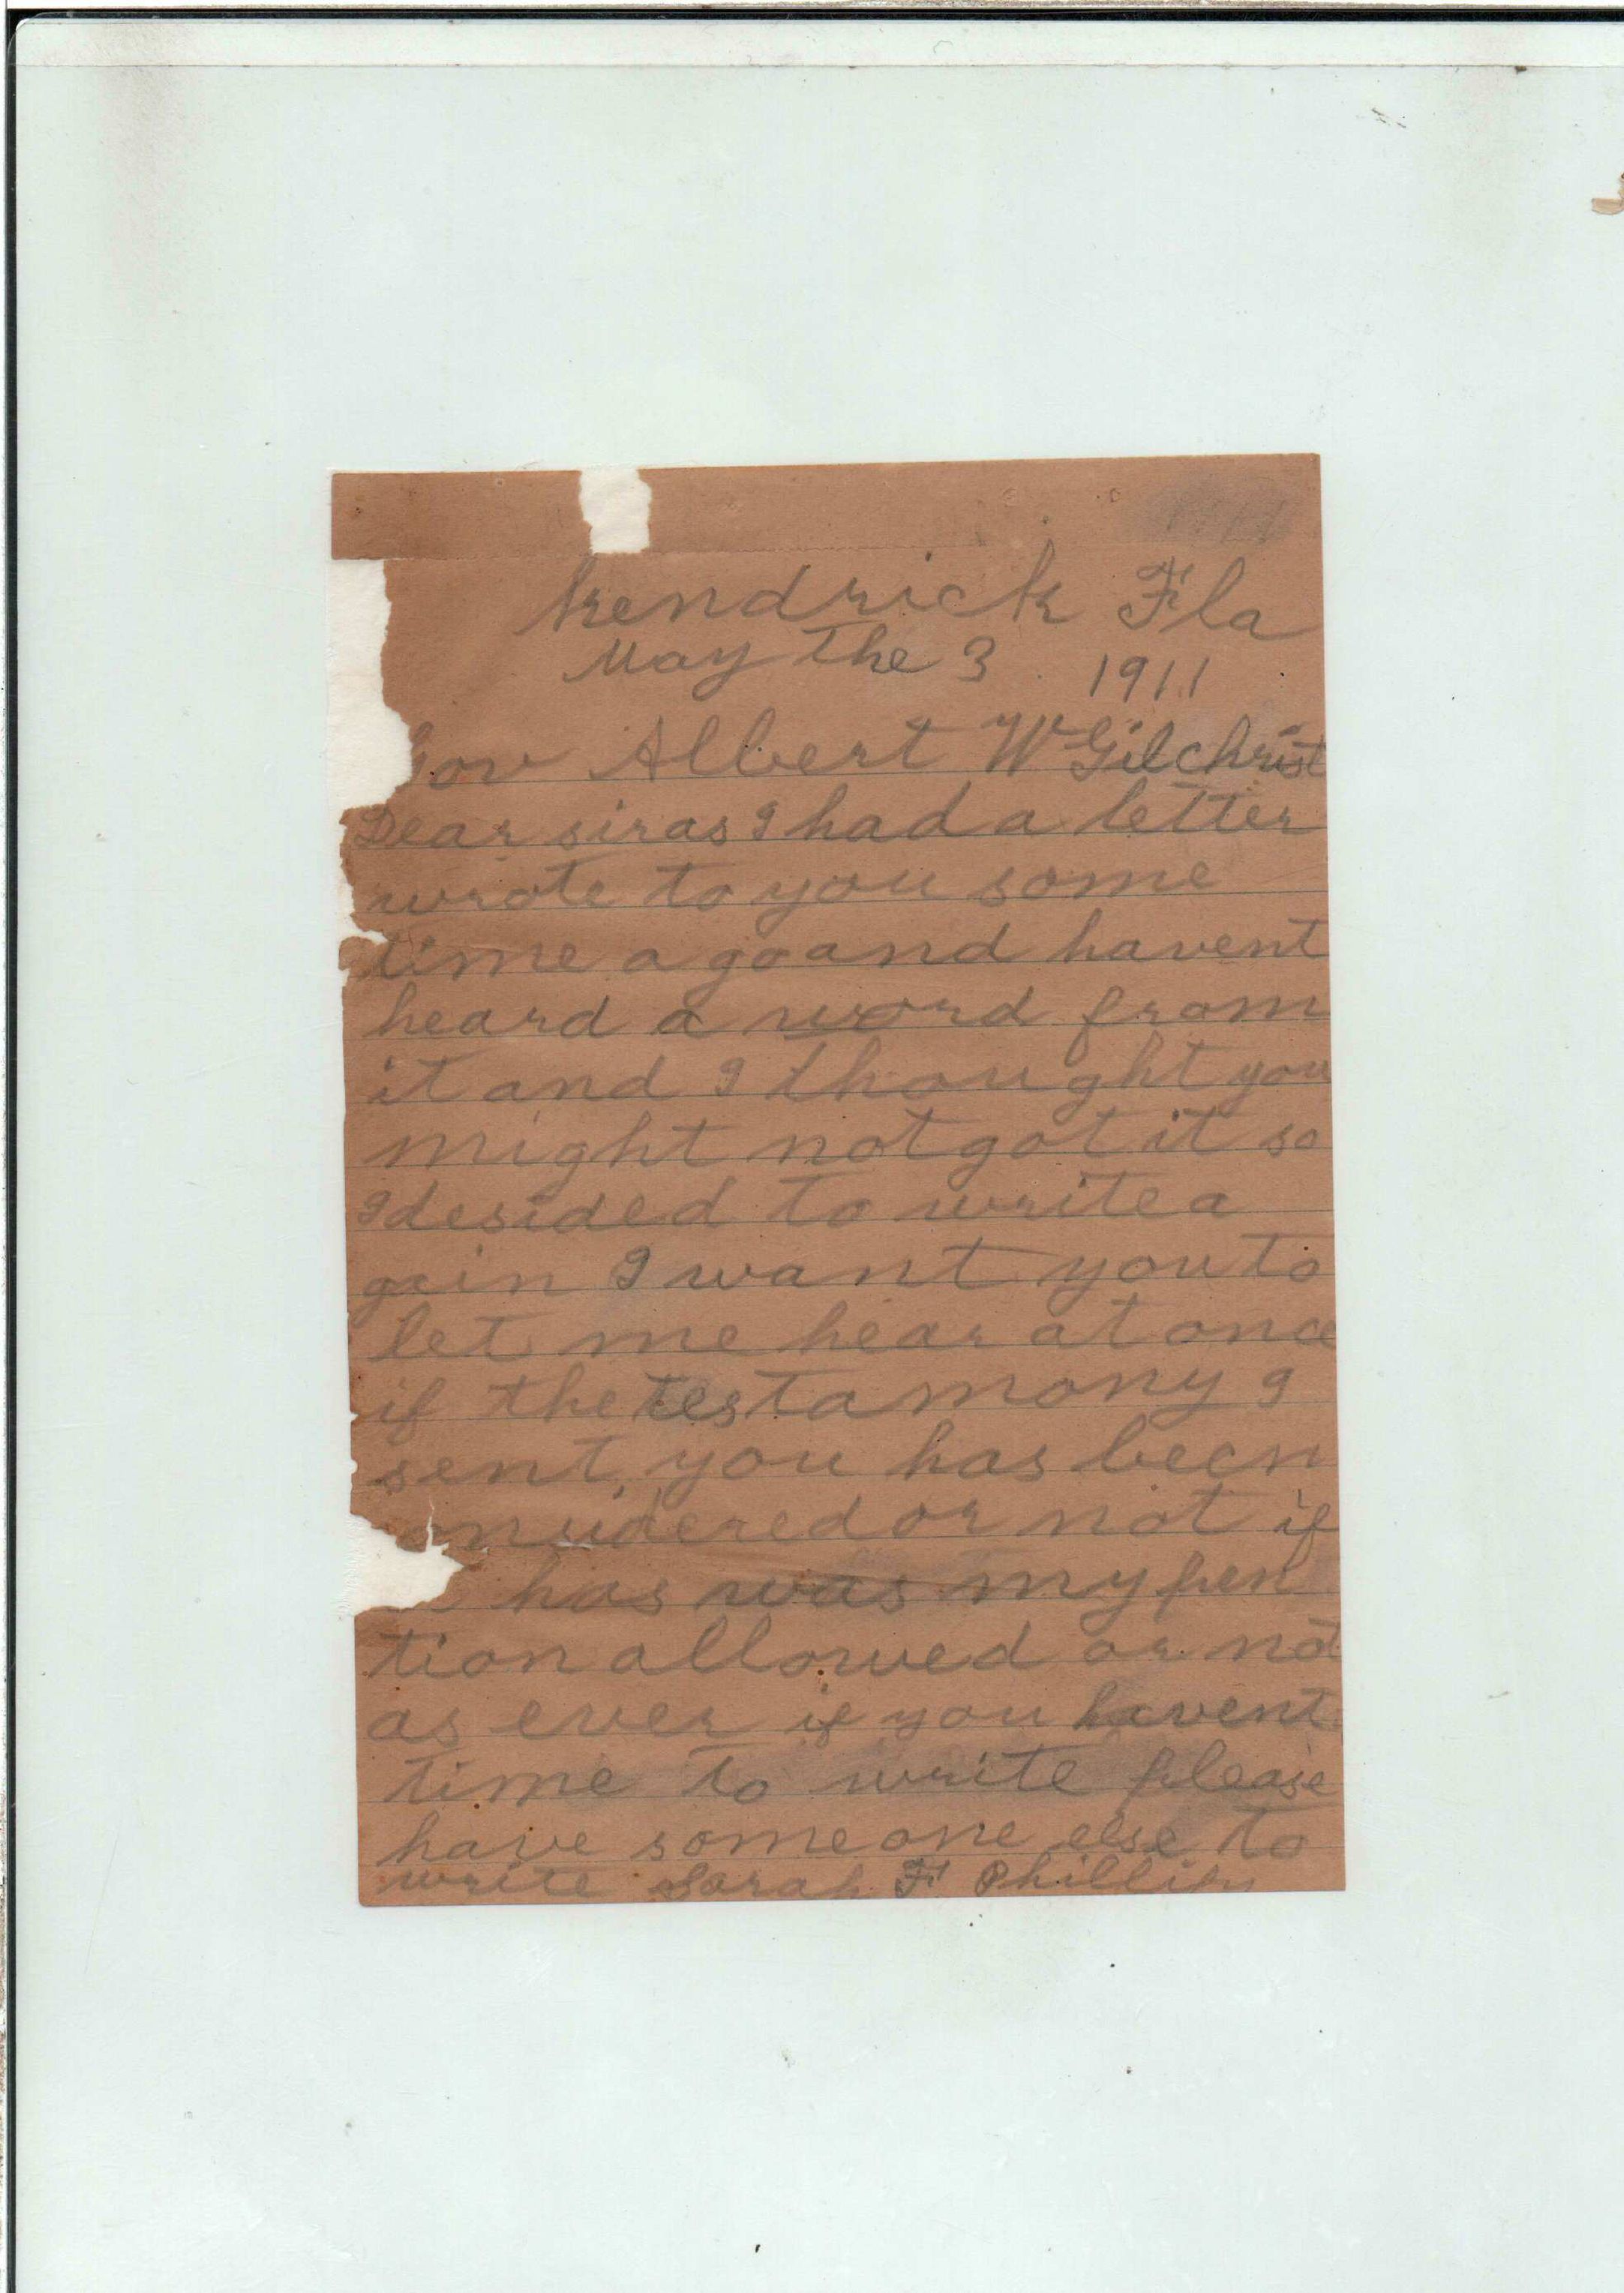 Kendrick Fla
May the 3 1911
Gov Albert W Gilchrist
Dear sir as I had a letter
wrote to you some
time a go and havent
heard a word from
it and I thought you
might not got it so
I desided to write a
gain I want you to
let me hear at once
if the testamony I
sent you has been
onsidered or not if
has was my pen
tion allowed or not
as ever if you havent
time to write please
have some one else to
write Sarah F Phillips